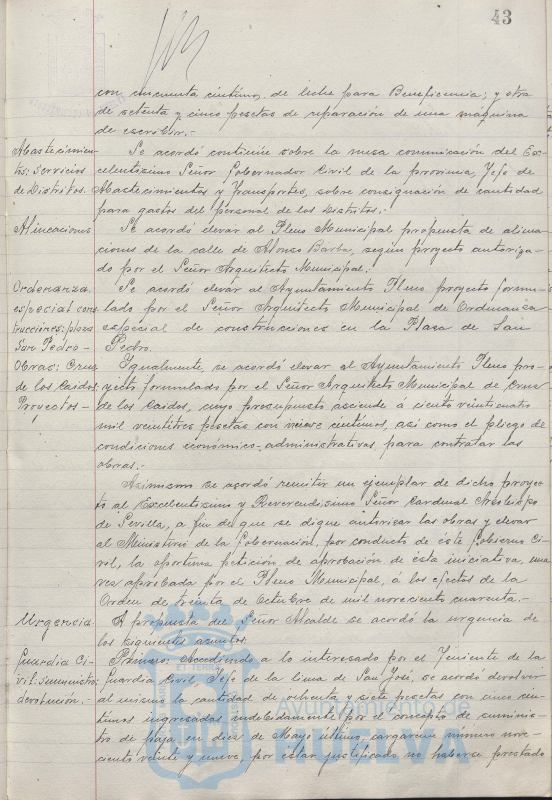 43
con cincuenta céntimos, de leche para Beneficencia; y otra
de setenta y cinco pesetas de reparación de una máquina
de escribir.-
Abastecimien-
tos; servicios
de Distritos.
Se acordó continúe sobre la mesa comunicación del Ex-
celentísimo Señor Gobernador Civil de la provincia, Jefe de
Abastecimientos y Transportes, sobre consignación de cantidad
para gastos del personal de los Distritos.-
Alineaciones
Se acordó elevar al Pleno Municipal propuesta de alinea-
ciones de la calle de Alonso Barba, según proyecto autoriza-
do por el Señor Arquitecto Municipal.-
Ordenanza
especial cons-
trucciones; plaza
San Pedro -
Se acordó elevar al Ayuntamiento Pleno proyecto formu-
lado por el Señor Arquitecto Municipal de Ordenanza
especial de construcciones en la Plaza de San
Pedro.
Obras; Cruz
de los Caidos;
Proyectos -
Igualmente, se acordó elevar al Ayuntamiento Pleno pro-
yecto formulado por el Señor Arquitecto Municipal de Cruz
de los Caidos, cuyo presupuesto asciende á ciento veinticuatro
mil veintitres pesetas con nueve céntimos, así como el pliego de
condiciones económico-administrativas para contratar las
obras.-
Asimismo se acordó remitir un ejemplar de dicho proyec-
to al Excelentísimo y Reverendísimo Señor Cardenal Arzobispo
de Sevilla, a fin de que se digne autorizar las obras y elevar
al Ministerio de la Gobernación, por conducto de éste Gobierno Ci-
vil, la oportuna petición de aprobación de ésta iniciativa, una
vez aprobada por el Pleno Municipal, á los efectos de la
Orden de treinta de Octubre de mil novecientos cuarenta.-
Urgencia
A propuesta del Señor Alcalde se acordó la urgencia de
los siguientes asuntos.
Guardia Ci-
vil. Suministro;
devolución.-
Primero: Accediendo a lo interesado por el Teniente de la
Guardia Civil Jefe de la línea de San José, se acordó devolver
al mismo la cantidad de ochenta y siete pesetas con cinco cén-
timos ingresadas indebidamente por el concepto de suminis-
tro de paja, en diez de Mayo último, cargareme número nove-
ciento veinte y nueve, por estar justificado no haberse prestado
Ayuntamiento de
HUELVA